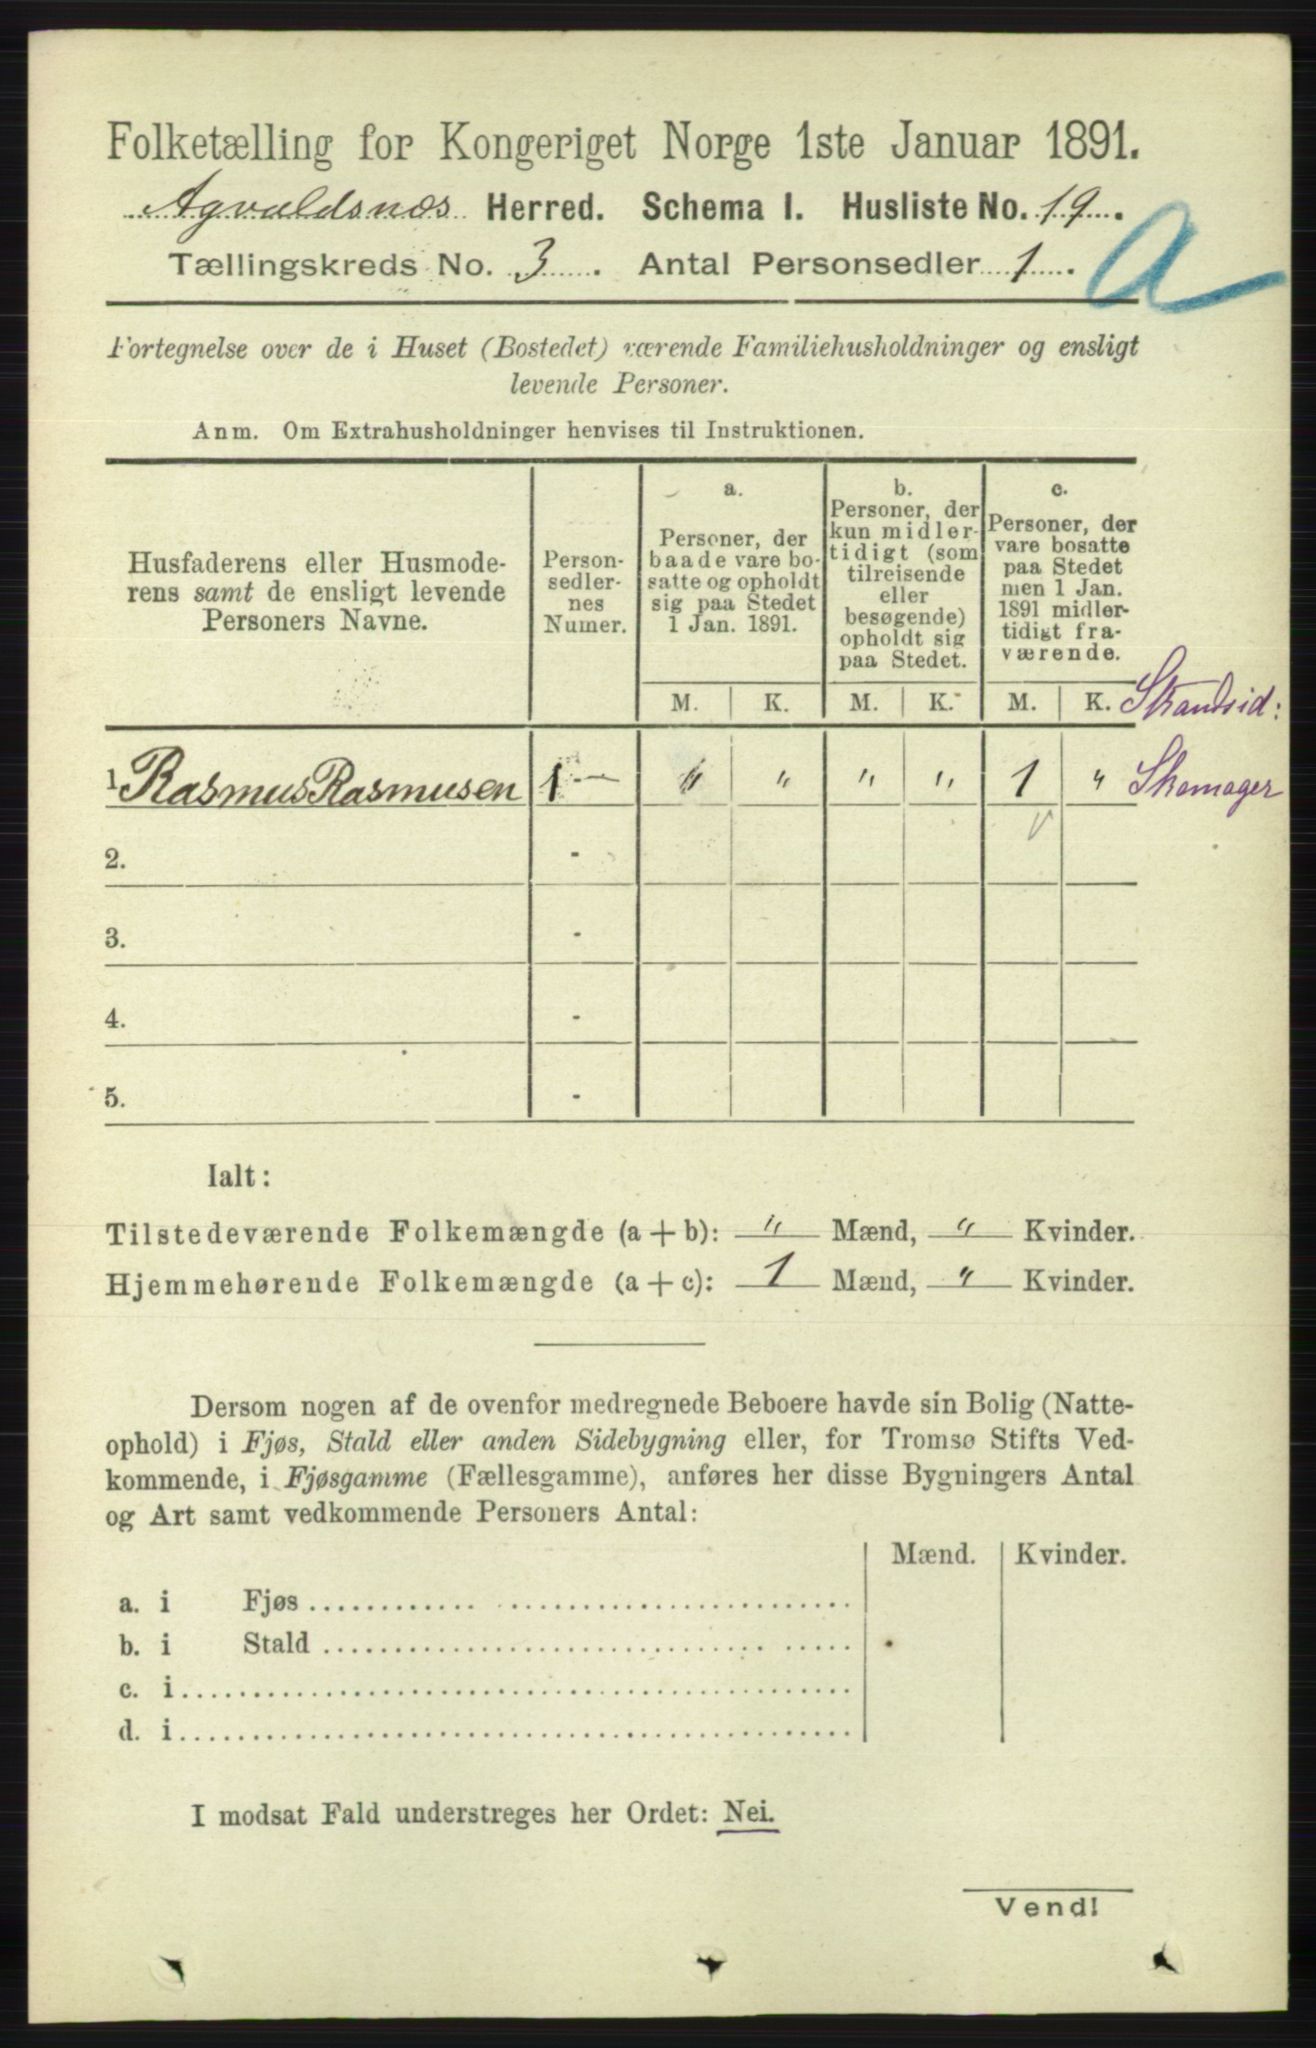 Folketælling for Kongeriget Norge 1ste Januar 1891.
Agvaldsnæs Herred. Schema I. Husliste No. 19.
Tællingskreds No. 3. Antal Personsedler 1.
A
Fortegnelse over de i Huset (Bostedet) værende Familiehusholdninger og ensligt
levende Personer.
Anm. Om Extrahusholdninger henvises til Instruktionen.
Husfaderens eller Husmode-
rens samt de ensligt levende
Personers Navne.
Person-
sedler-
nes
Numer.
a.
Personer, der
baade vare bo-
satte og opholdt
sig paa Stedet
1 Jan. 1891.
b.
Personer, der
kun midler-
tidigt (som
tilreisende
eller
besøgende)
opholdt sig
paa Stedet.
c.
Personer, der
vare bosatte
paa Stedet
men 1 Jan.
1891 midler-
tidigt fra-
værende.
M. K. M. K. M. K. Strandsid:
1 Rasmus Rasmusen 1 - " " " " 1 " Skomager
2. -
3. -
4. -
5. -
Ialt:
Tilstedeværende Folkemængde (a + b): " Mænd, " Kvinder.
Hjemmehørende Folkemængde (a + c): 1 Mænd, " Kvinder.
Dersom nogen af de ovenfor medregnede Beboere havde sin Bolig (Natte-
ophold) i Fjøs, Stald eller anden Sidebygning eller, for Tromsø Stifts Ved-
kommende, i Fjøsgamme (Fællesgamme), anføres her disse Bygningers Antal
og Art samt vedkommende Personers Antal:
Mænd. Kvinder.
a. i Fjøs
b. i Stald
c. i
d. i
I modsat Fald understreges her Ordet: Nei.
Vend!